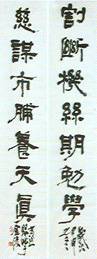 割斷機絲期勉學
慈謀市脯養天真